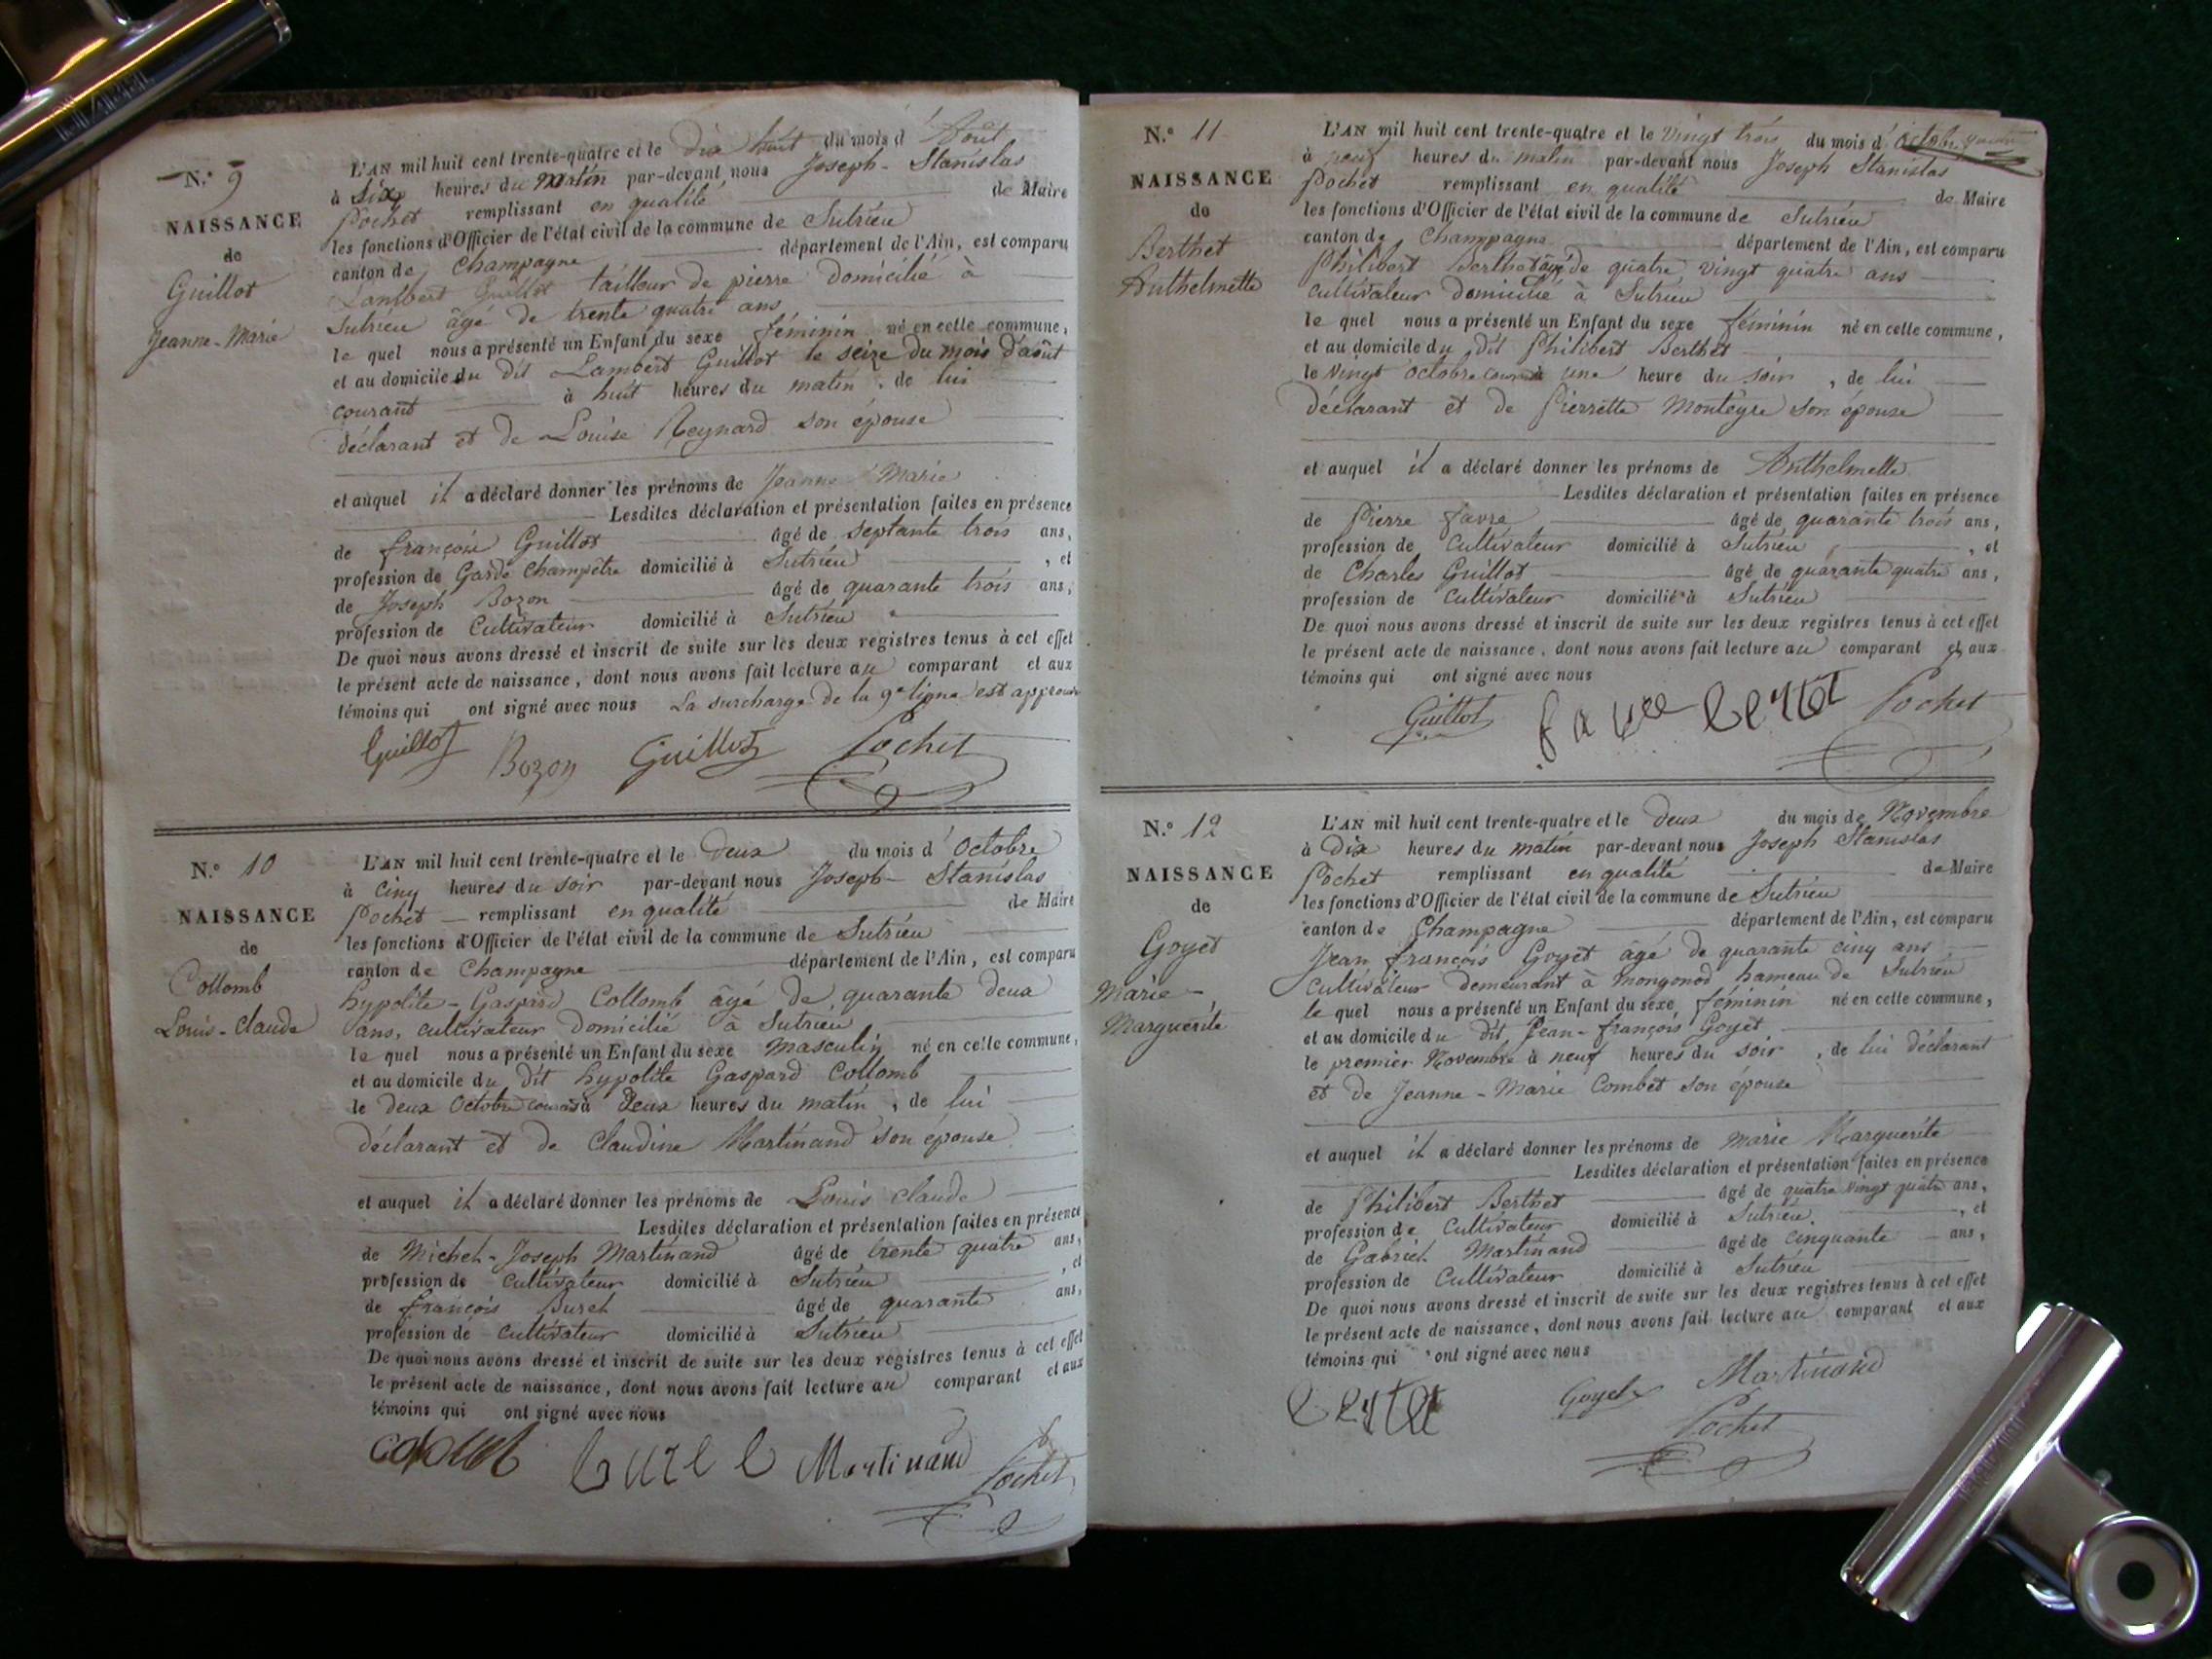 N.° 9
NAISSANCE
de
Guillot
Jeanne-Marie
L'AN mil huit cent trente-quatre et le dix huit du mois d'Août
à six heures du matin par-devant nous Joseph-Stanislas
Pochet remplissant en qualité de Maire
les fonctions d'Officier de l'état civil de la commune de Sutrieu
canton de Champagne département de l'Ain, est comparu
Lambert Guillot tailleur de pierre domicilié à
Sutrieu âgé de trente quatre ans
le quel nous a présenté un Enfant du sexe féminin né en cette commune,
et au domicile du dit Lambert Guillot le seize du mois d'août
courant à huit heures du matin, de lui
déclarant et de Louise Reynard son épouse
et auquel il a déclaré donner les prénoms de Jeanne Marie
Lesdites déclaration et présentation faites en présence
de françois Guillot âgé de septante trois ans,
profession de Garde champêtre domicilié à Sutrieu, et
de Joseph Bozon âgé de quarante trois ans,
profession de Cultivateur domicilié à Sutrieu
De quoi nous avons dressé et inscrit de suite sur les deux registres tenus à cet effet
le présent acte de naissance, dont nous avons fait lecture au comparant et aux
témoins qui ont signé avec nous La surcharge de la 9e ligne est approuvé
Guillot Bozon Guillot Pochet
N.° 10
NAISSANCE
de
Collomb
Louis-Claude
L'AN mil huit cent trente-quatre et le deux du mois d'Octobre
à cinq heures du soir par-devant nous Joseph-Stanislas
Pochet remplissant en qualité de Maire
les fonctions d'Officier de l'état civil de la commune de Sutrieu
canton de Champagne département de l'Ain, est comparu
hypolite-Gaspard Collomb âgé de quarante deux
ans, cultivateur domicilié à Sutrieu
le quel nous a présenté un Enfant du sexe masculin né en cette commune,
et au domicile du dit hypolite Gaspard Collomb
le deux Octobre courant à deux heures du matin, de lui
déclarant et de Claudine Martinand son épouse
et auquel il a déclaré donner les prénoms de Louis Claude
Lesdites déclaration et présentation faites en présence
de Michel-Joseph Martinand âgé de trente quatre ans,
profession de cultivateur domicilié à Sutrieu, et
de françois Buret âgé de quarante ans,
profession de cultivateur domicilié à Sutrieu
De quoi nous avons dressé et inscrit de suite sur les deux registres tenus à cet effet
le présent acte de naissance, dont nous avons fait lecture au comparant et aux
témoins qui ont signé avec nous
Martinand Pochet
N.° 11
NAISSANCE
de
Berthet
Anthelmette
L'AN mil huit cent trente-quatre et le vingt trois du mois d'octobre
à neuf heures du matin par-devant nous Joseph Stanislas
Pochet remplissant en qualité de Maire
les fonctions d'Officier de l'état civil de la commune de Sutrieu
canton de Champagne département de l'Ain, est comparu
Philibert Berthet âgé de quatre vingt quatre ans
cultivateur domicilié à Sutrieu
le quel nous a présenté un Enfant du sexe féminin né en cette commune,
et au domicile du dit Philibert Berthet
le vingt octobre courant à une heure du soir, de lui
déclarant et de Pierrette Monteyre son épouse
et auquel il a déclaré donner les prénoms de Anthelmette
Lesdites déclaration et présentation faites en présence
de Pierre favre âgé de quarante trois ans,
profession de cultivateur domicilié à Sutrieu, et
de Charles Guillot âgé de quarante quatre ans,
profession de cultivateur domicilié à Sutrieu
De quoi nous avons dressé et inscrit de suite sur les deux registres tenus à cet effet
le présent acte de naissance, dont nous avons fait lecture au comparant et aux
témoins qui ont signé avec nous
Guillot Pochet
N.° 12
NAISSANCE
de
Goyet
Marie-
Marguerite
L'AN mil huit cent trente-quatre et le deux du mois de Novembre
à Dix heures du matin par-devant nous Joseph Stanislas
Pochet remplissant en qualité de Maire
les fonctions d'Officier de l'état civil de la commune de Sutrieu
canton de Champagne département de l'Ain, est comparu
Jean françois Goyet âgé de quarante cinq ans
cultivateur demeurant à mongonod hameau de Sutrieu
le quel nous a présenté un Enfant du sexe féminin né en cette commune,
et au domicile du dit Jean-françois Goyet
le premier Novembre à neuf heures du soir, de lui déclarant
et de Jeanne-Marie Combet son épouse
et auquel il a déclaré donner les prénoms de Marie Marguerite
Lesdites déclaration et présentation faites en présence
de Philibert Berthet âgé de quatre vingt quatre ans,
profession de cultivateur domicilié à Sutrieu, et
de Gabriel Martinand âgé de cinquante ans,
profession de Cultivateur domicilié à Sutrieu
De quoi nous avons dressé et inscrit de suite sur les deux registres tenus à cet effet
le présent acte de naissance, dont nous avons fait lecture au comparant et aux
témoins qui ont signé avec nous
Goyet Martinand
Pochet